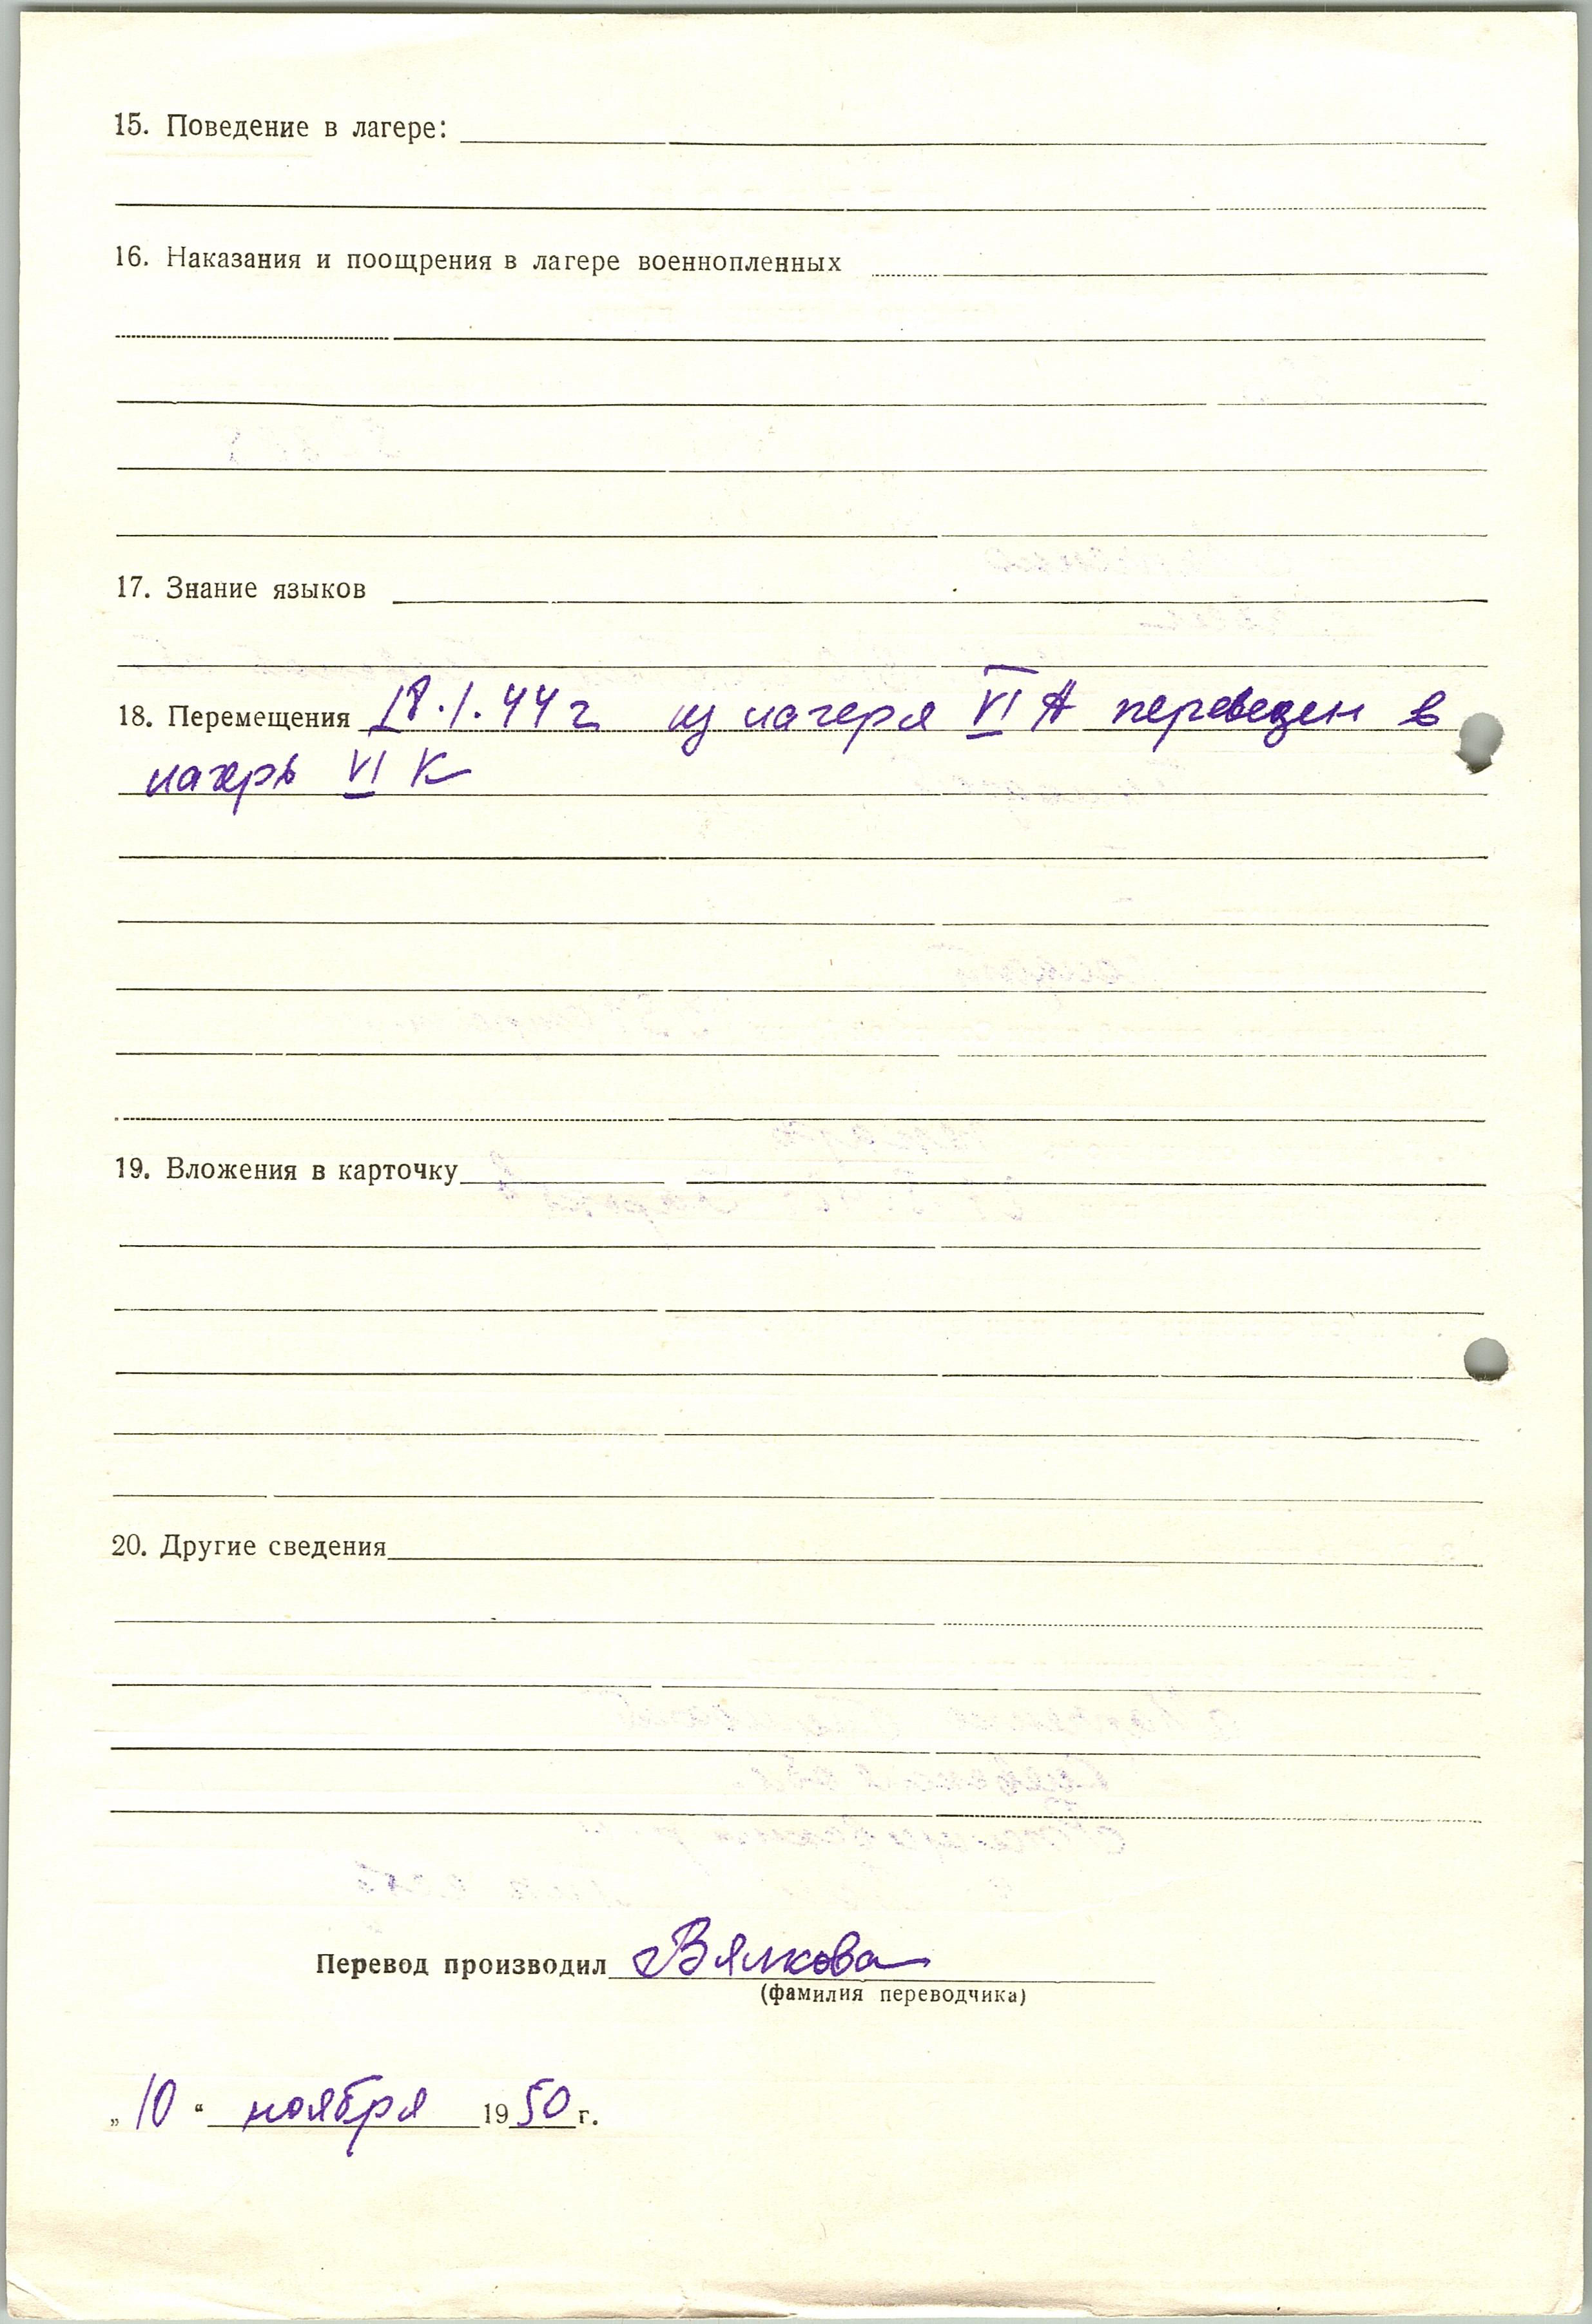 15. Поведение в лагере:
16. Наказания и поощрения в лагере военнопленных
17. Знание языков
18. Перемещения 18.1.44 г из лагеря VI А переведен в
лагерь VI К
19. Вложения в карточку
20. Другие сведения
Перевод производил Вялкова
(фамилия переводчика)
„ 10 “ ноября 1950 г.